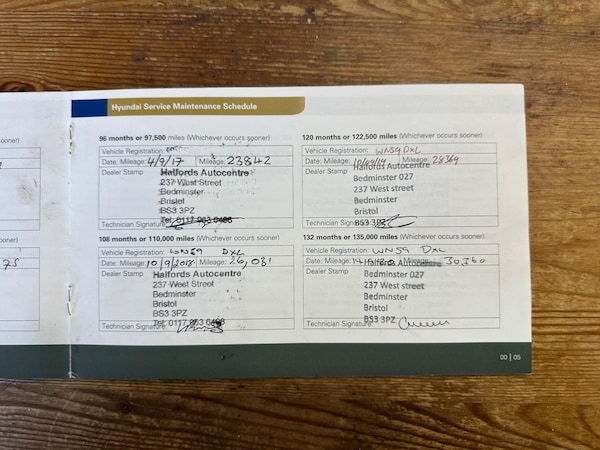 ooner)
Hyundai Service Maintenance Schedule
96 months or 97,500 miles (Whichever occurs sooner)
Vehicle Registration:
Date: 4/9/17 Mileage: 23842
Dealer Stamp
Halfords Autocentre
237 West Street
Bedminster
Bristol
BS3 3PZ
Tel: 0117 963 6496
Technician Signature:
120 months or 122,500 miles (Whichever occurs sooner)
Vehicle Registration: WN59 DXL
Date: Mileage: Mileage: 28369
Dealer Stamp
Halfords Autocentre
Bedminster 027
237 West street
Bedminster
Bristol
BS3 3PZ
Technician Signature:
ooner)
75
108 months or 110,000 miles (Whichever occurs sooner)
Vehicle Registration: WN59 DXL
Date: 10/9/2018 Mileage: 26,081
Dealer Stamp
Halfords Autocentre
237 West Street
Bedminster
Bristol
BS3 3PZ
Tel: 0117 963 6496
Technician Signature:
132 months or 135,000 miles (Whichever occurs sooner)
Vehicle Registration: WN59 DXL
Date: Mileage: 30360
Dealer Stamp
Halfords Autocentre
Bedminster 027
237 West street
Bedminster
Bristol
BS3 3PZ
Technician Signature:
00 | 05